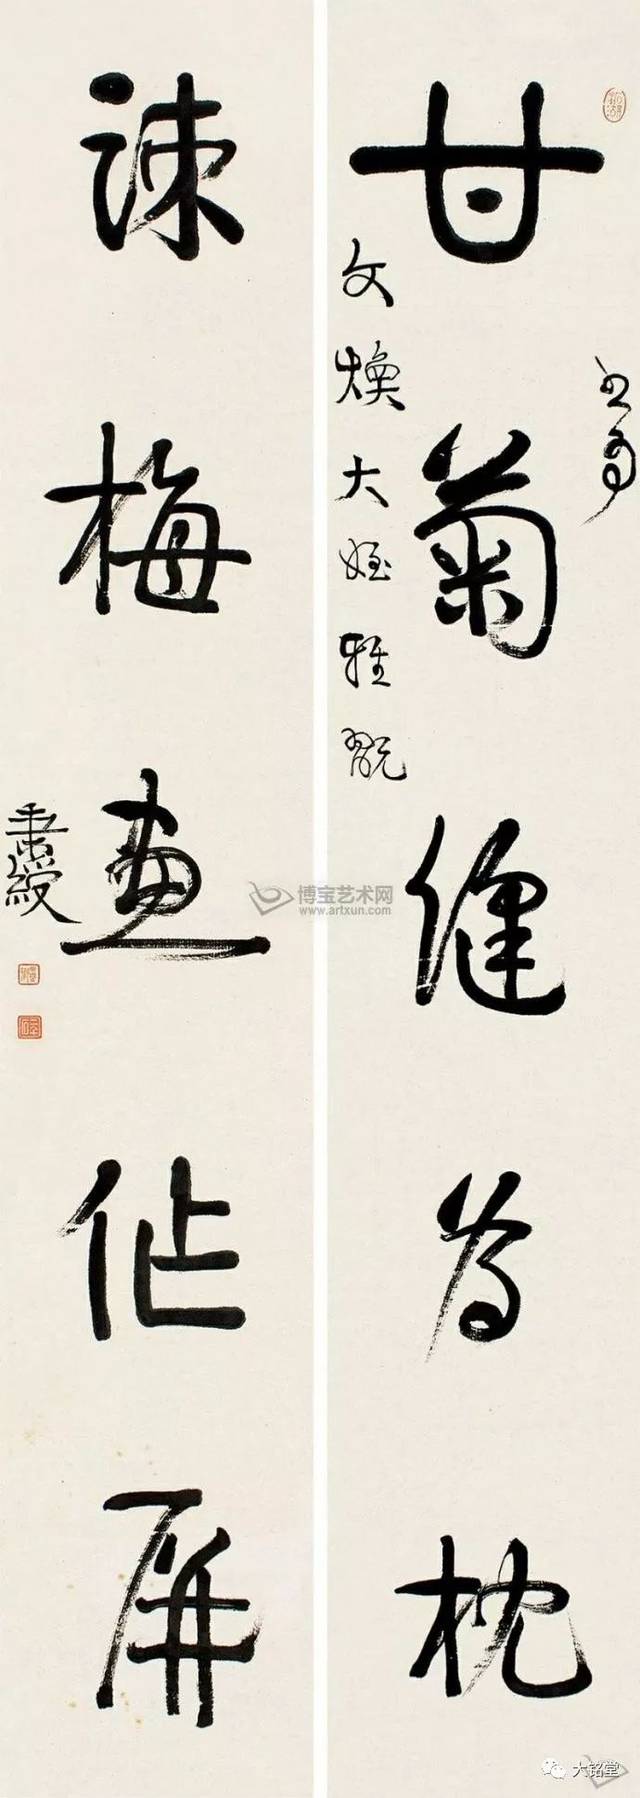 甘菊縫為枕
書為
文煥大姪雅翫
疎梅畫作屏
秉綬
博宝艺术网
www.artxun.com
大铭堂